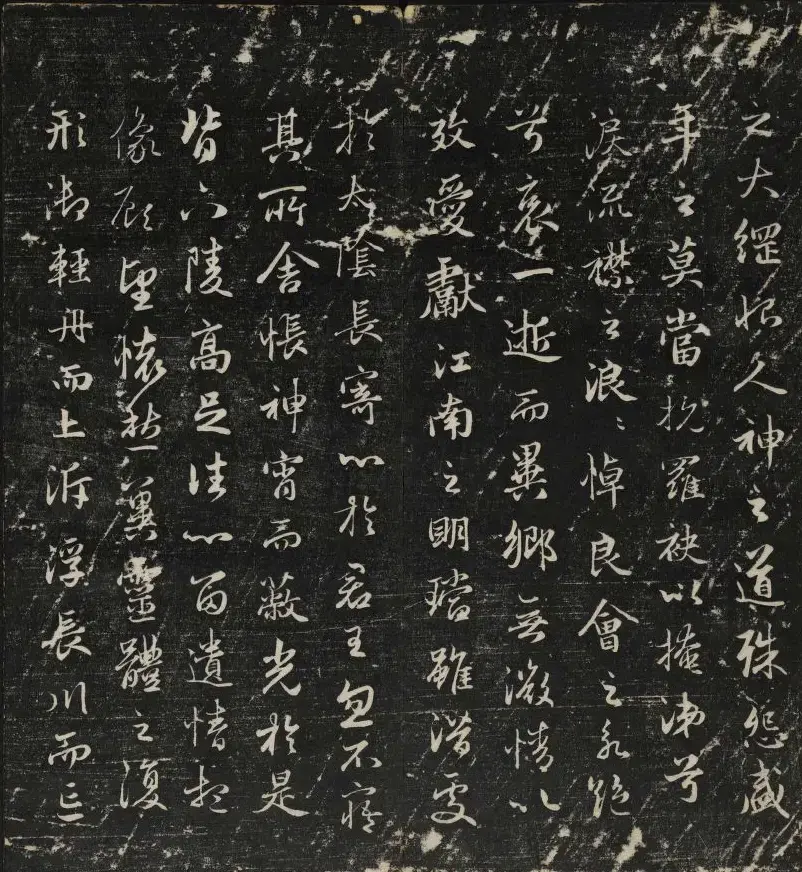 之大綱恨人神之道殊怨盛
年之莫當抗羅袂以掩涕兮
淚流襟之浪〻悼良會之永絕
兮哀一逝而異鄉無微情以
效愛獻江南之明璫雖潛處
於太陰長寄心於君王忽不寤
其所舍悵神宵而蔽光於是
背下陵高足往心留遺情想
像顧望懷愁冀靈體之復
形御輕舟而上泝浮長川而忘